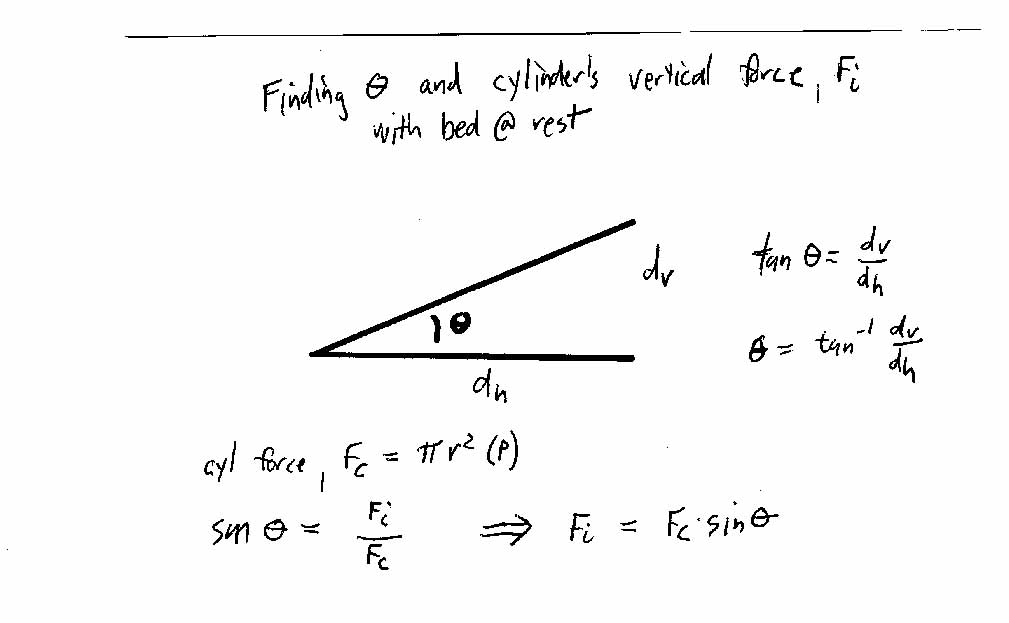 Finding θ and cylinder's vertical force, Fi
with bed @ rest
dv
tan θ = dv/dh
θ
θ = tan⁻¹ dv/dh
dh
cyl force, Fc = πr² (P)
sin θ = Fi/Fc ⇒ Fi = Fc·sinθ